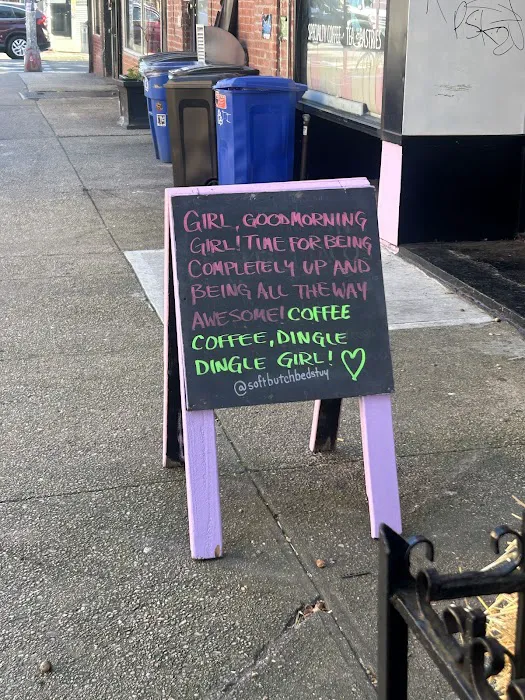 GIRL, GOODMORNING
GIRL! TIME FOR BEING
COMPLETELY UP AND
BEING ALL THE WAY
AWESOME! COFFEE
COFFEE, DINGLE
DINGLE GIRL! ♡
@softbutchbedstuy